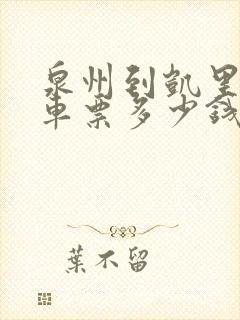 泉州到凯里
车票多少钱
葉不留